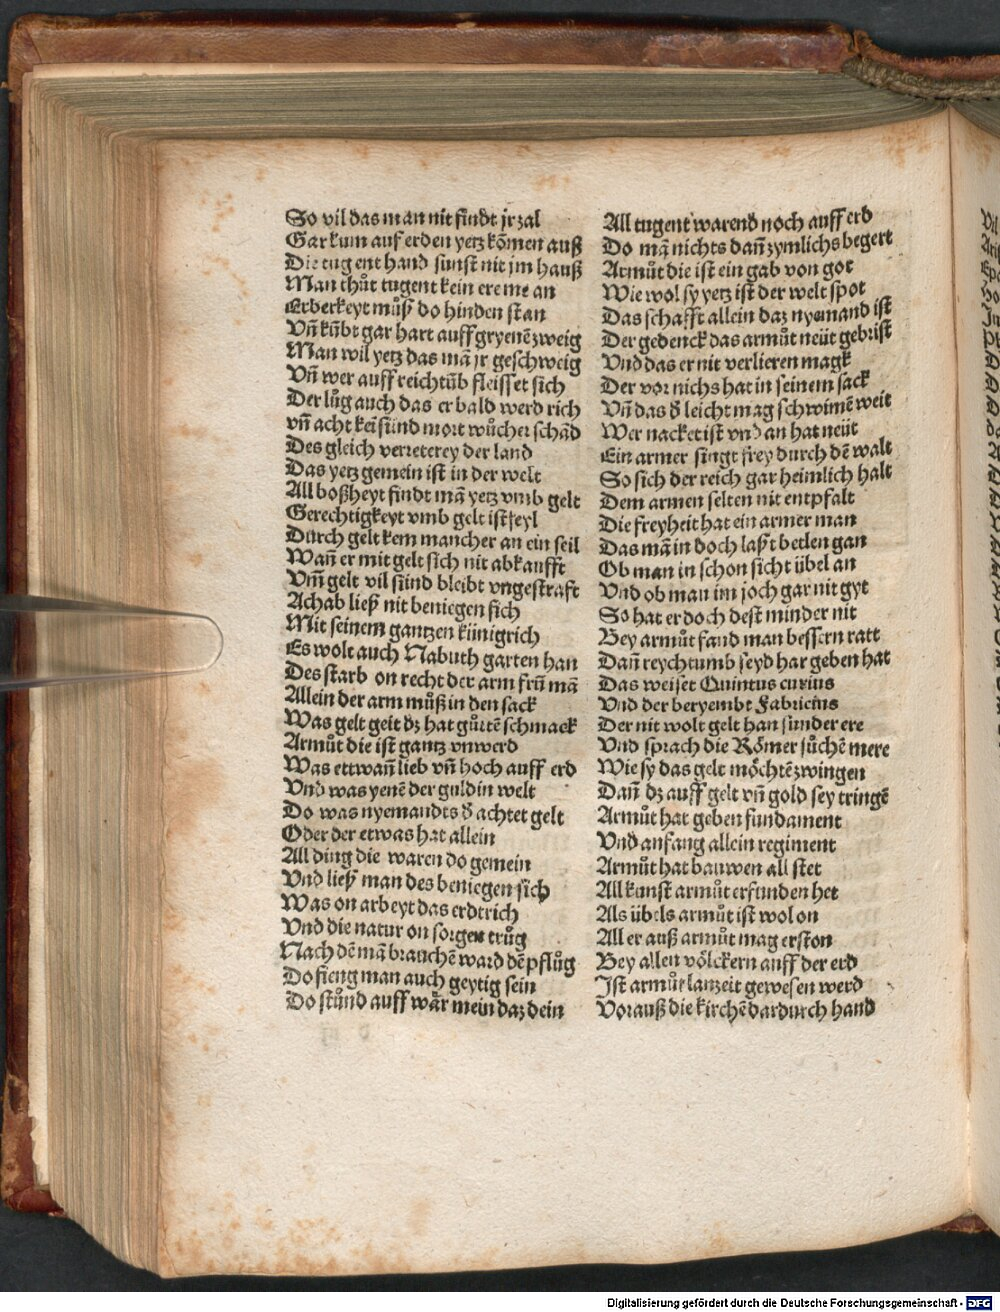 So vil das man nit findt jr zal
Gar kum auf erden yetz kõmen auß
Die tugent hand sunst nit jm hauß
Man thůt tugent kein ere me an
Erberkeyt můß do hinden stan
Vñ kũbt gar hart auff gryenẽ zweig
Man wil yetz das mã jr geschweig
Vñ wer auff reichtũb fleisset sich
Der lůg auch das er bald werd rich
vñ acht kei sünd mort wůcher schãd
Des gleich verreterey der land
Das yetz gemein ist in der welt
All boßheyt findt mã yetz vmb gelt
Gerechtigkeyt vmb gelt ist feyl
Durch gelt kem mancher an ein seil
Wañ er mit gelt sich nit abkaufft
Vm̃ gelt vil sünd bleibt vngestraft
Achab ließ nit beniegen sich
Mit seinem gantzen künigrich
Es wolt auch Nabuth garten han
Des starb on recht der arm frũ mã
Allein der arm můß in den sack
Was gelt geit dz hat gůttẽ schmack
Armůt die ist gantz vnwerd
Was ettwañ lieb vñ hoch auff erd
Vnd was yenẽ der guldin welt
Do was nyemandts d̕ achtet gelt
Oder der etwas hat allein
All ding die waren do gemein
Vnd ließ man des beniegen sich
Was on arbeyt das erdtrich
Vnd die natur on sorgen trůg
Nach dẽ mã brauchẽ ward dẽ pflůg
Do fieng man auch geytig sein
Do stůnd auff wår mein daz dein
All tugent warend noch auff erd
Do mã nichts dañ zymlichs begert
Armůt die ist ein gab von got
Wie wol sy yetz ist der welt spot
Das schafft allein daz nyemand ist
Der gedenck das armůt neüt gebrist
Vnd das er nit verlieren magk
Der vor nichs hat in seinem sack
Vñ das d̕ leicht mag schwimẽ weit
Wer nacket ist vnd an hat neüt
Ein armer singt frey durch dẽ walt
So sich der reich gar heimlich halt
Dem armen selten nit entpfalt
Die freyheit hat ein armer man
Das mã in doch laßt betlen gan
Ob man in schon sicht übel an
Vnd ob man im joch gar nit gyt
So hat er doch dest minder nit
Bey armůt fand man bessern ratt
Dañ reychtumb seyd har geben hat
Das weiset Quintus curius
Vnd der beryembt Fabricius
Der nit wolt gelt han sunder ere
Vnd sprach die Römer sůchẽ mere
Wie sy das gelt möchtẽ zwingen
Dañ dz auff gelt vñ gold sey tringẽ
Armůt hat geben fundament
Vnd anfang allein regiment
Armůt hat bauwen all stet
All kunst armůt erfunden het
Als übels armůt ist wol on
All er auß armůt mag erston
Bey allen völckern auff der erd
Ist armůt lanzeit gewesen werd
Vorauß die kirchẽ dardurch hand
Digitalisierung gefördert durch die Deutsche Forschungsgemeinschaft - DFG